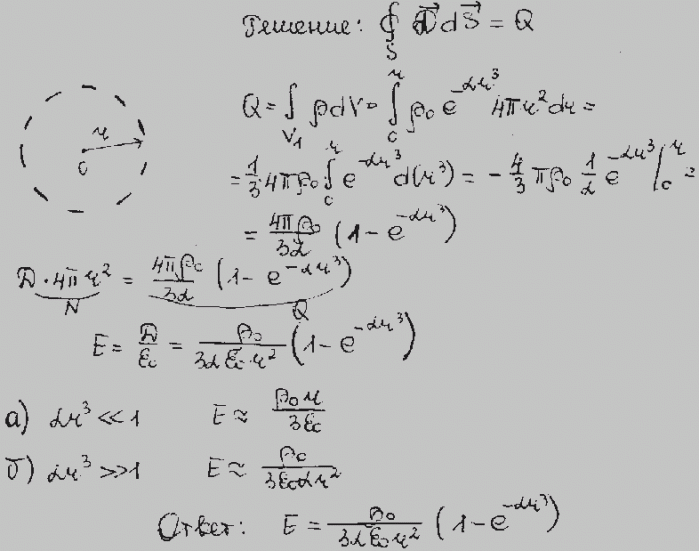 Решение: ∮_S D⃗ dS⃗ = Q
Q = ∫_{V₁} ρdV = ∫_0^r ρ₀ e^{-αr³} 4πr²dr =
= 1/3 · 4πρ₀ ∫_0^r e^{-αr³} d(r³) = - 4/3 πρ₀ 1/α e^{-αr³} |_0^r =
= 4πρ₀/3α (1 - e^{-αr³})
r
0
D · 4πr² = 4πρ₀/3α (1 - e^{-αr³})
N Q
E = D/ε₀ = ρ₀/3αε₀·r² (1 - e^{-αr³})
а) αr³ << 1 E ≈ ρ₀r/3ε₀
б) αr³ >> 1 E ≈ ρ₀/3ε₀αr²
Ответ: E = ρ₀/3αε₀r² (1 - e^{-αr³})